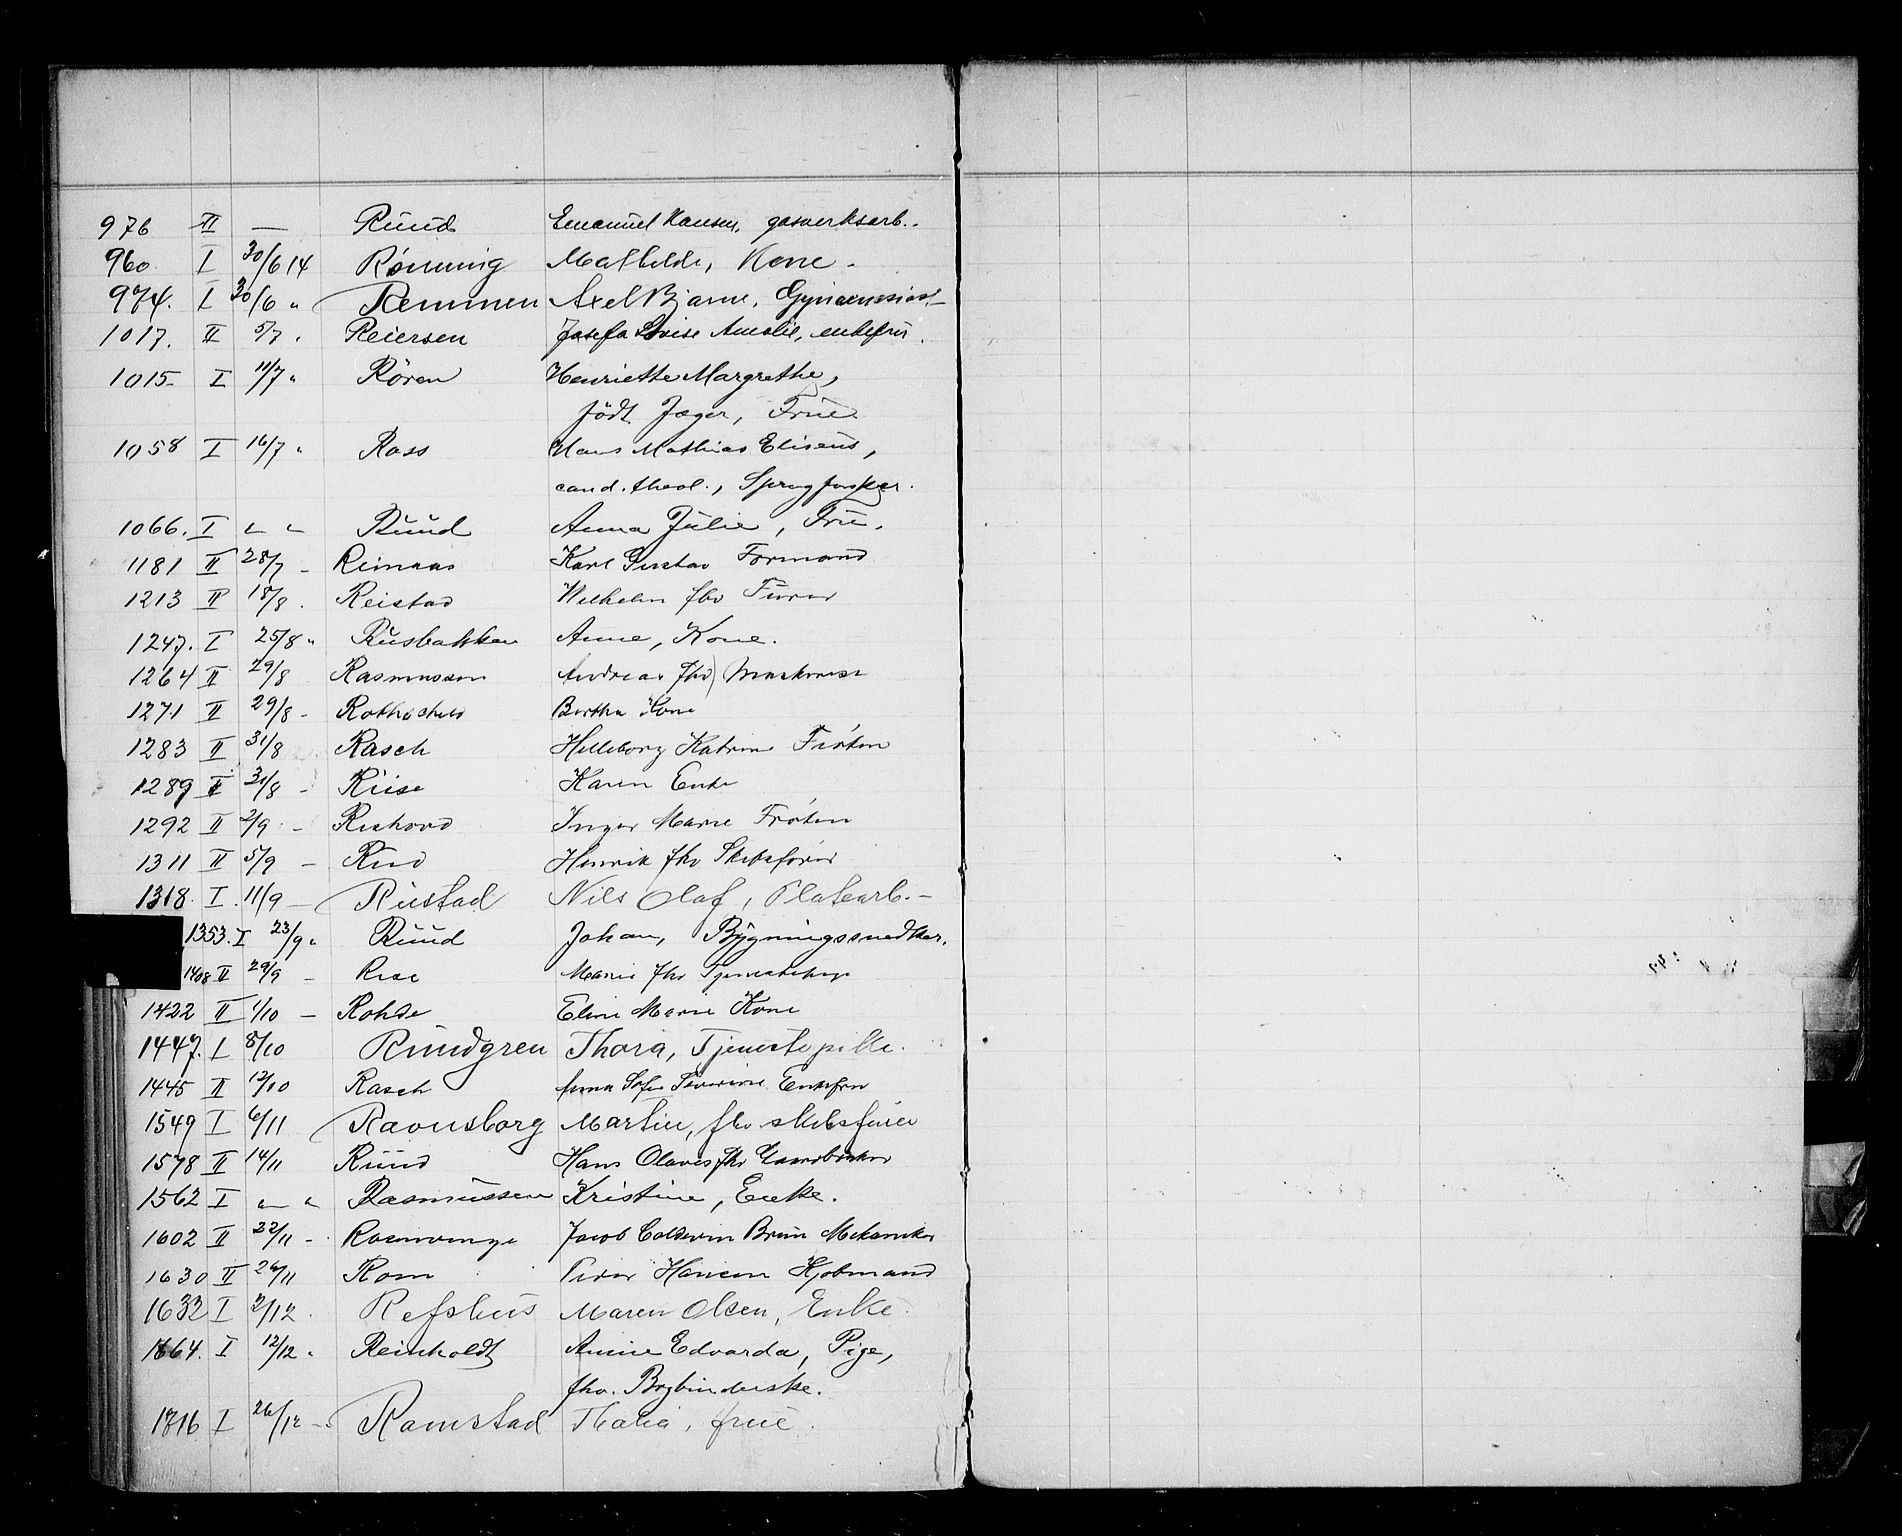 976 II — Ruud Emanuel Hansen, gasverksarb.
960 I 30/6 14 Rønning Mathilde, Kone.
974. I 30/6 " Remmen Axel Bjarne, Gymnasiast
1017. II 5/7 " Reiersen Josefa Lovise Amalie, enkefru.
1015 I 11/7 " Røren Henriette Margrethe,
født Jæger, Frue
1058 I 16/7 " Ross Hans Mathias Eliseus,
cand. theol., Sprogforsker.
1066. I " " Ruud Anna Julie, Frue.
1181 II 28/7 - Reimaas Karl Gustav Formand
1213 II 18/8. Reistad Wilhelm fhv
1247. I 25/8 " Rusbakken Anne, Kone.
1264 II 29/8 Rasmussen Andreas fhv Maskinist
1271 II 29/8 - Rothschild Bertha Kone
1283 II 31/8 Rasch Helleborg Katrine Frøken
1289 II 31/8 - Riise Karen Enke
1292 II 2/9 - Inger Marie Frøken
1311 II 5/9 — Henrik fhv Skibsfører
1318. I. 11/9 — Rustad Nils Olaf, Platearb. -
1353. I 23/9 " Ruud Johan, Bygningssnedker.
1408 II 29/9 - Rise Marie fhv Tjenestepige
1422 II 1/10 — Rohde Eline Marie Kone
1447. I 8/10 Rundgren Thora, Tjenestepike.
1445 II 12/10 Rasch Anna Sofie Severine Enkefru
1549 I 6/11 Ravnsborg Martin, fhv skibsfører
1578 II 14/11 Ruud Hans Olaves fhv Gaardbruker
1562 I " " Rasmussen Kristine, Enke.
1602 II 22/11 - Rosenvinge Jacob Coldevin Brun Mekaniker
1630 II 26/11 Rom Peder Hansen Kjøbmand
1632 I 2/12. Refshus Maren Olsen, Enke.
1664. I 12/12 " Reinholdt Annie Edvarda, Pige,
fhv. Bogbinderske.
1716 I 26/12 - Ramstad Thalia, frue.